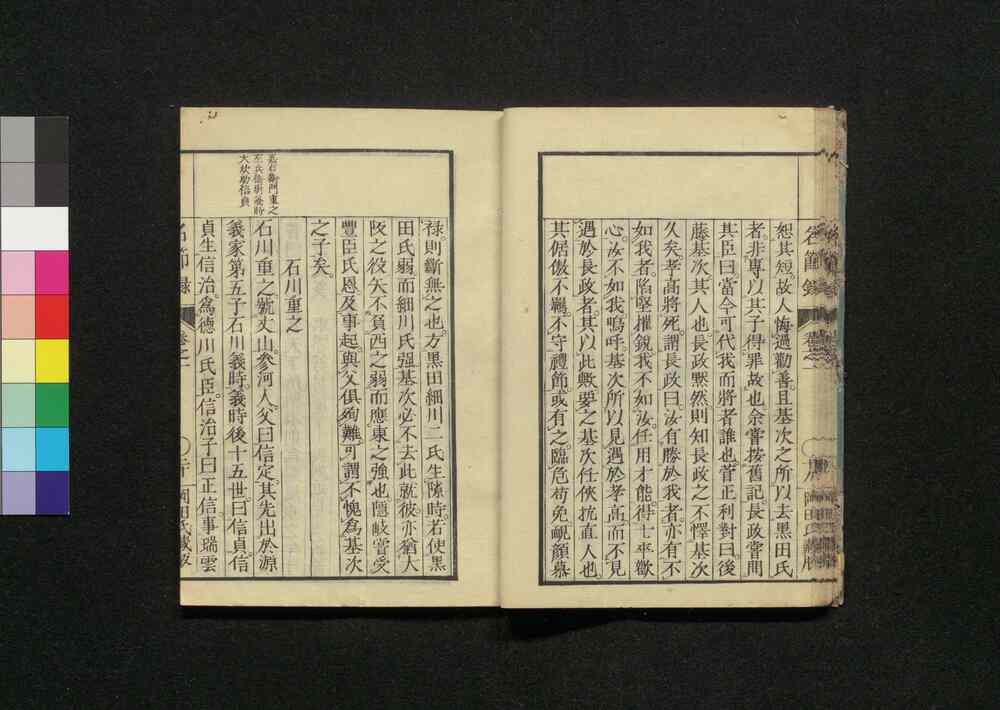 恕其短。故人悔過勸善。且基次之所以去黑田氏
者。非專以其子得罪故也。余嘗按舊記。長政嘗問
其臣曰。當今可代我而將者誰也。菅正利對曰。後
藤基次其人也。長政黙然。則知長政之不懌基次
久矣。孝高將死。謂長政曰。汝有勝於我者。亦有不
如我者。陷堅摧銳。我不如汝。任用才能。得士卒歡
心。汝不如我。嗚呼。基次所以見遇於孝高。而不見
遇於長政者。其以此歟。要之基次任俠抗直人也。
其倨傲不羈。不守禮節。或有之。臨危苟免。靦顏慕
祿。則斷無之也。方黑田細川二氏生隙時。若使黑
田氏弱而細川氏强。基次必不去此就彼。亦猶大
阪之役。矢不負西之弱而應東之強也。隱岐嘗受
豐臣氏恩。及事起。與父俱殉難。可謂不愧爲基次
之子矣。
石川重之
石川重之。號丈山。參河人。父曰信定。其先出於源
義家第五子石川義時。義時後十五世。曰信貞。信
貞生信治。爲德川氏臣。信治子曰正信。事瑞雲
名節錄
卷之一
岡田氏藏版
名節錄